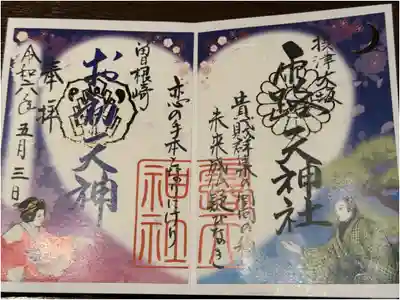 摂津大坂
露天神社
貴賎群集の回向の種
未来成仏疑ひなき
恋の手本となりにけり
曽根崎
お初天神
奉拝
令和六年五月三日
露天
神社